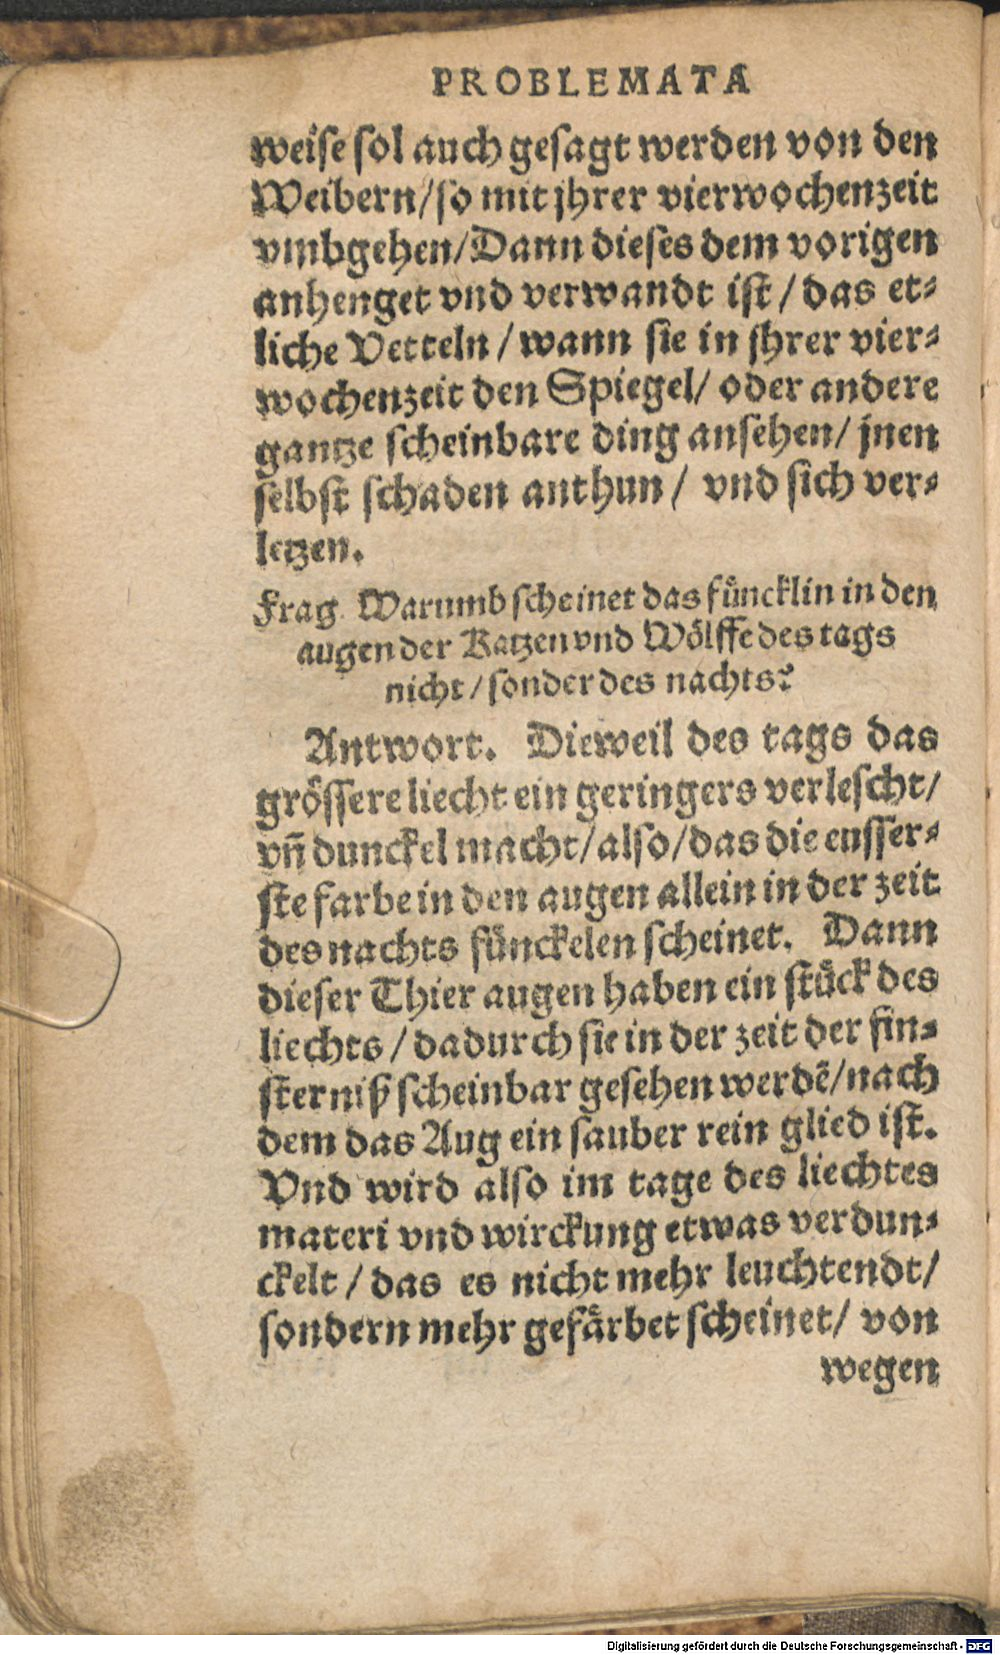 PROBLEMATA
weise sol auch gesagt werden von den
Weibern/so mit jhrer vierwochenzeit
vmbgehen/Dann dieses dem vorigen
anhenget vnd verwandt ist/das et-
liche Vetteln/wann sie in jhrer vier-
wochenzeit den Spiegel/oder andere
gantze scheinbare ding ansehen/jnen
selbst schaden anthun/vnd sich ver-
letzen.
Frag. Warumb scheinet das fůncklin in den
augen der Katzen vnd Wölffe des tags
nicht/sonder des nachts?
Antwort. Dieweil des tags das
grössere liecht ein geringers verlescht/
vn̄ dunckel macht/also/das die eusser-
ste farbe in den augen allein in der zeit
des nachts fůnckelen scheinet. Dann
dieser Thier augen haben ein stůck des
liechts/dadurch sie in der zeit der fin-
sterniß scheinbar gesehen werdē/nach
dem das Aug ein sauber rein glied ist.
Vnd wird also im tage des liechtes
materi vnd wirckung etwas verdun-
ckelt/das es nicht mehr leuchtendt/
sondern mehr gefärbet scheinet/von
wegen
Digitalisierung gefördert durch die Deutsche Forschungsgemeinschaft - DFG